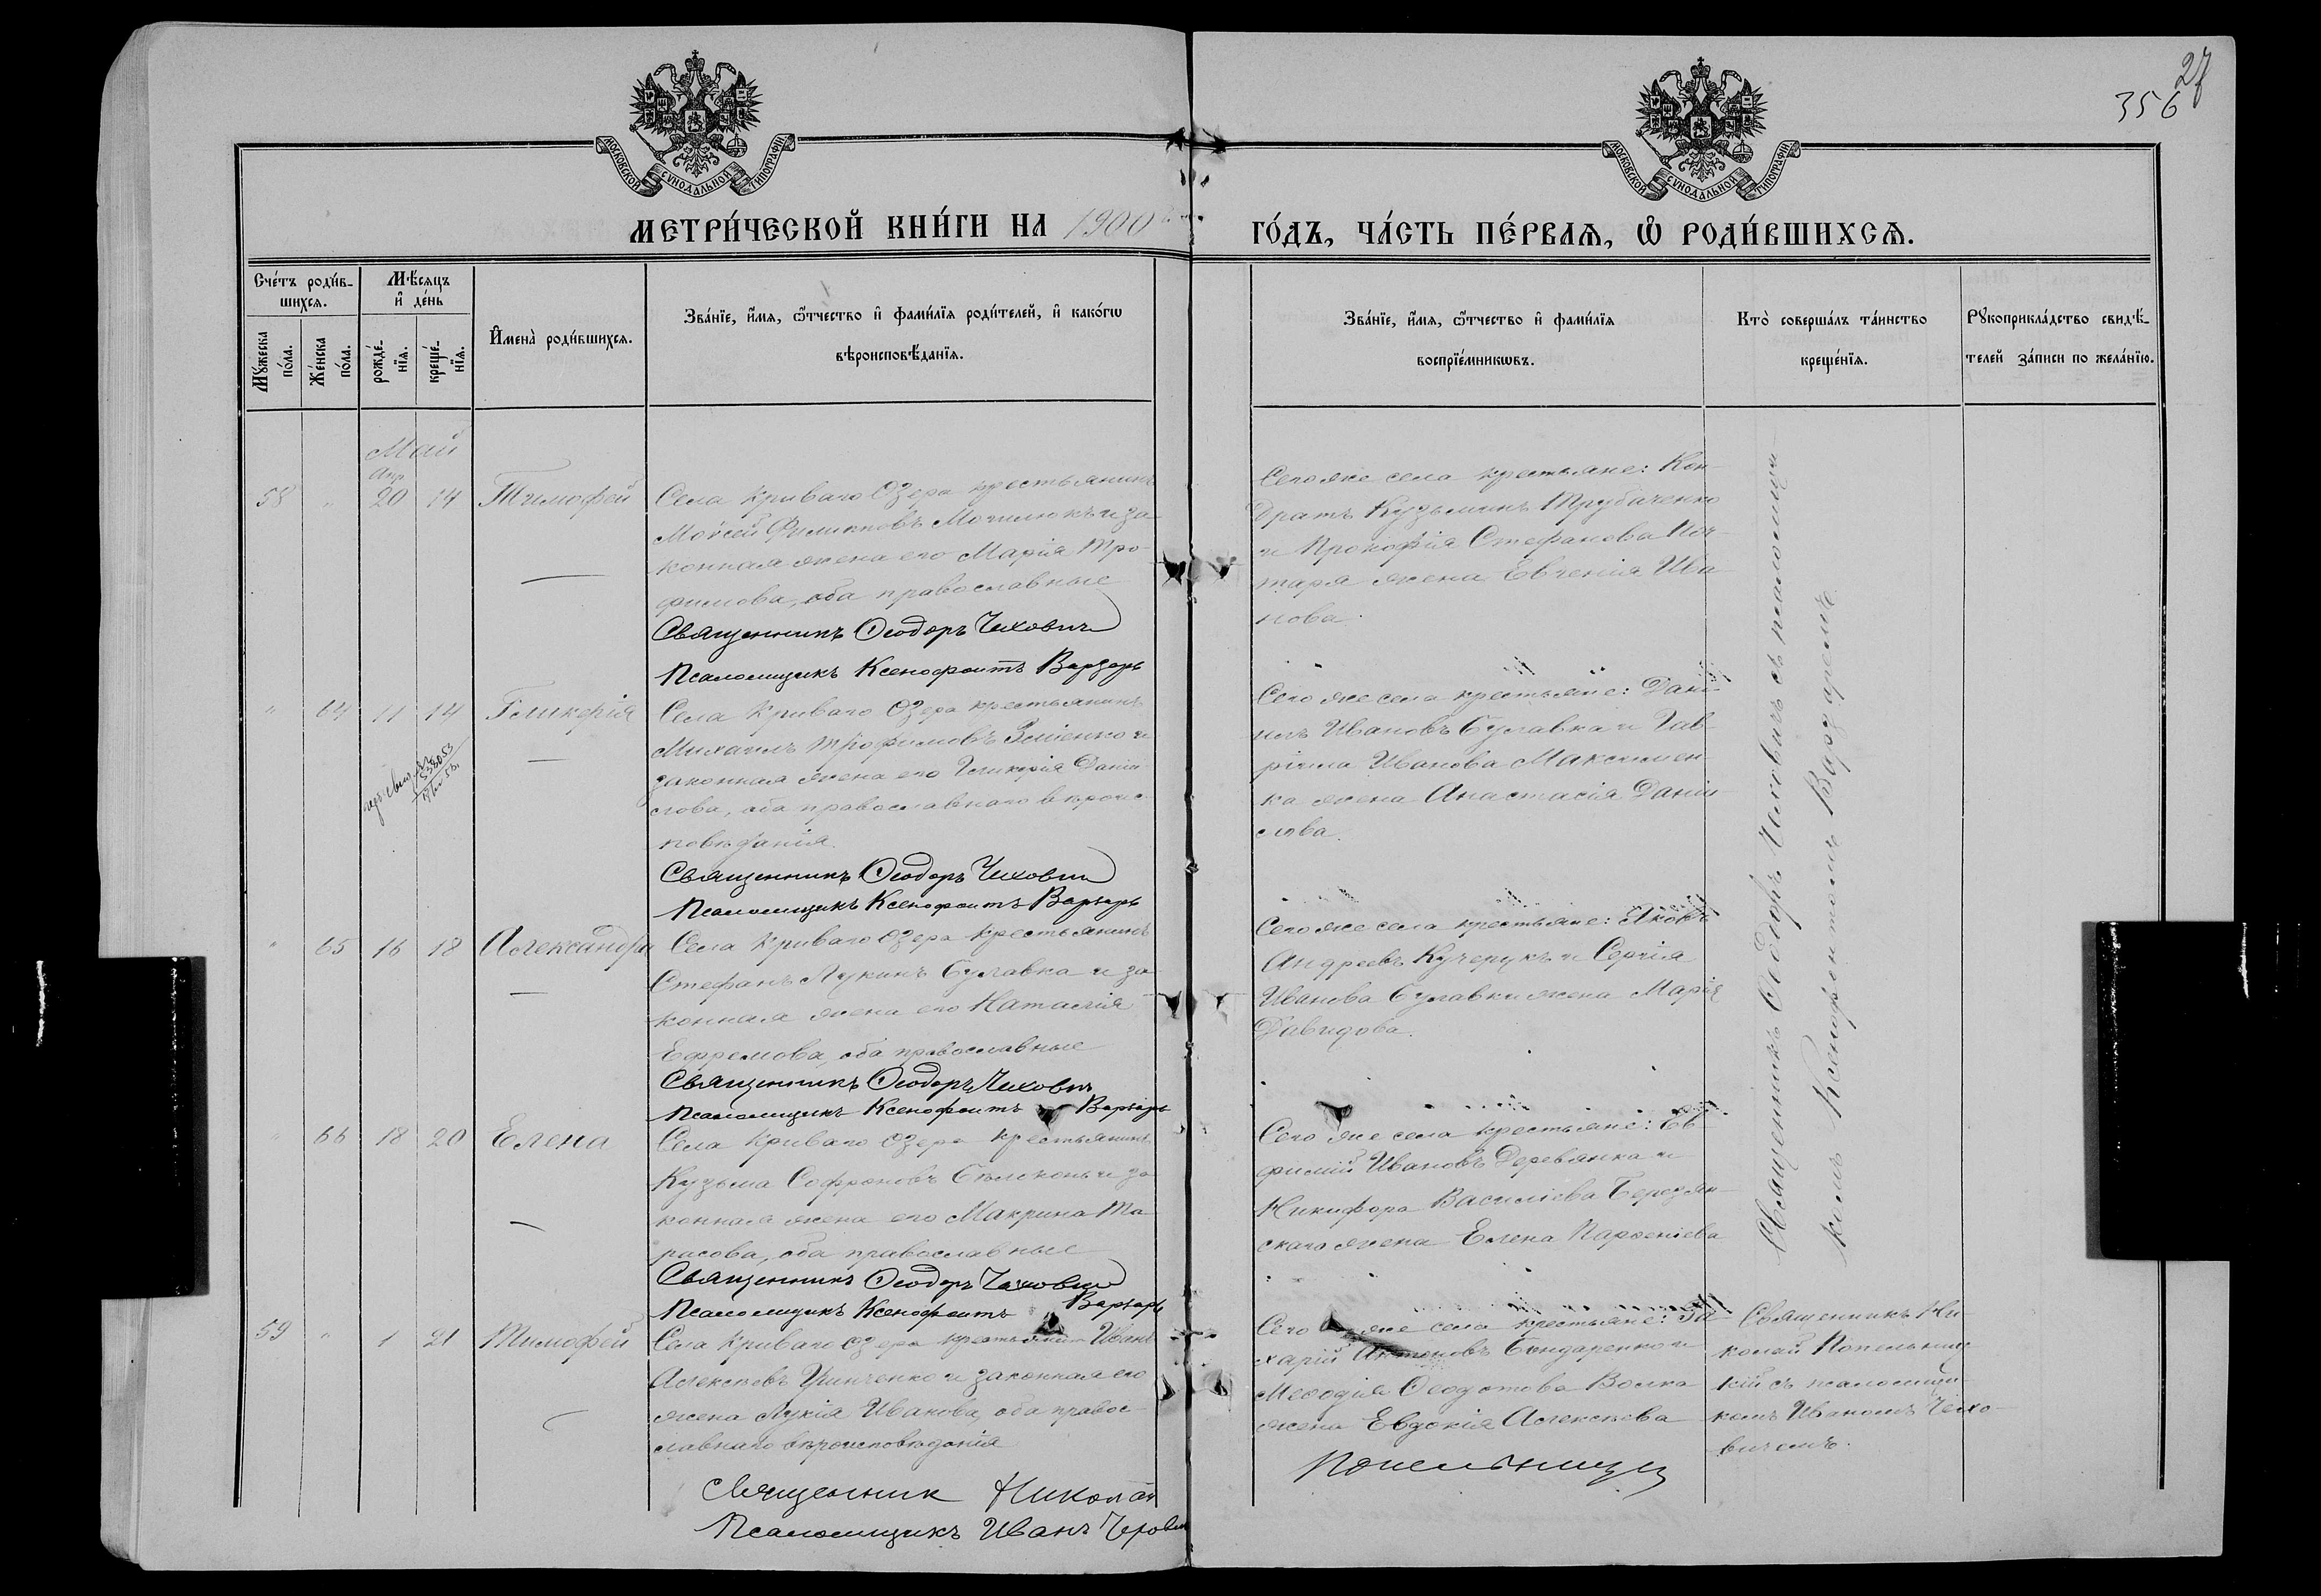 27
356
МОСКОВСКОЙ СѴНОДАЛЬНОЙ ТИПОГРАФІИ
МОСКОВСКОЙ СѴНОДАЛЬНОЙ ТИПОГРАФІИ
МЕТРИ́ЧЕСКОЙ КНИ́ГИ НА 1900
ГО́ДЪ, ЧА́СТЬ ПЕ́РВАѦ, Ѡ҆ РОДИ́ВШИХСѦ.
Сче́тъ роди́в-
шихсѧ.
Мꙋ́жеска
по́ла.
Же́нска
по́ла.
Мѣ́сѧцъ
и҆ де́нь
рожде́-
нїѧ.
креще́-
нїѧ.
И҆мена̀ роди́вшихсѧ.
Зва́нїе, и҆́мѧ, ѻ҆́тчество и҆ фами́лїѧ роди́телей, и҆ како́гѡ
вѣроисповѣ́данїѧ.
Зва́нїе, и҆́мѧ, ѻ҆́тчество и҆ фами́лїѧ
воспрїе́мникѡвъ.
Кто̀ соверша́лъ та́инство
креще́нїѧ.
Рꙋкоприкла́дство свидѣ́-
телей за́писи по жела́нїю.
Май
Апр
58 " 20 14 Тимофей
Села Криваго Озера крестьянинъ
Моѵсей Филиповъ Мочилюкъ и за-
конная жена его Марія Тро-
фимова, оба православные
Священникъ Ѳеодоръ Чеховичъ
Псаломщикъ Ксенофонтъ Варзарь
Сегоже села крестьяне: Кон-
дратъ Кузьминъ Трубаченко
и Прокофія Стефанова Поч-
таря жена Евгенія Ива-
нова.
" 64 11 14 Гликерія
Села Криваго Озера крестьянинъ
Михаилъ Трофимовъ Зміенко и
законная жена его Гликерія Дании-
лова, оба православнаго вѣроис-
повѣданія.
Священникъ Ѳеодоръ Чеховичъ
Псаломщикъ Ксенофонтъ Варзарь
Сегоже села крестьяне: Дани-
илъ Ивановъ Булавка и Гав-
ріила Иванова Максимен-
ка жена Анастасія Дании-
лова.
" 65 16 18 Александра
Села Криваго Озера крестьянинъ
Стефанъ Лукинъ Булавка и за-
конная жена его Наталія
Ефремова, оба православные
Священникъ Ѳеодоръ Чеховичъ
Псаломщикъ Ксенофонтъ Варзарь
Сегоже села крестьяне: Яковъ
Андреевъ Кучерукъ и Сергія
Иванова Булавки жена Марія
Давидова.
" 66 18 20 Елена
Села Криваго Озера крестьянинъ
Кузьма Софроновъ Бѣлоконь и за-
конная жена его Макрина Та-
расова, оба православные
Священникъ Ѳеодоръ Чеховичъ
Псаломщикъ Ксенофонтъ Варзарь
Сего же села крестьяне: Ев-
фимій Ивановъ Деревянка и
Никифора Василіева Березян-
скаго жена Елена Парѳеніева
Священникъ Ѳеодоръ Чеховичъ съ псаломщи-
комъ Ксенофонтомъ Варзаремъ.
59 " 1 21 Тимофей
Села Криваго Озера крестьянинъ Иванъ
Алексѣевъ Ункченко и законная его
жена Лукія Иванова, оба правос-
лавнаго вѣроисповѣданія
Священник Николай
Псаломщикъ Иванъ
Сего же села крестьяне: За-
харій Антоновъ Бондаренко и
Меѳодія Ѳеодотова Волка
жена Евдокія Алексѣева
Священникъ Ни-
колай Попельниц-
кій съ псаломщи-
комъ Иваномъ Чехо-
вичемъ.